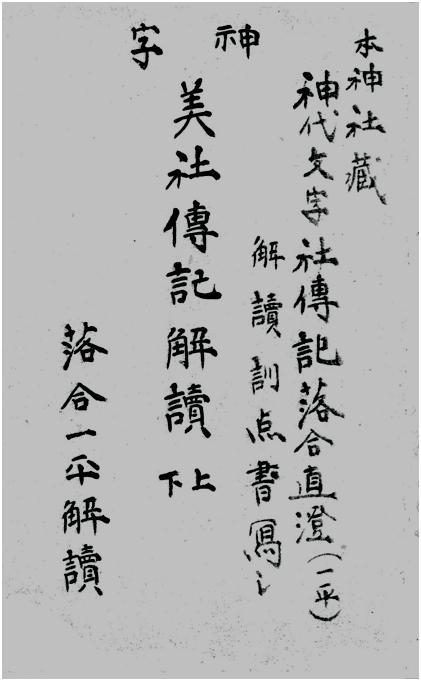 本神社藏
神代文字社傳記落合直澄（一平）
解讀訓点書寫
神字
美社傳記解讀 上下
落合一平解讀